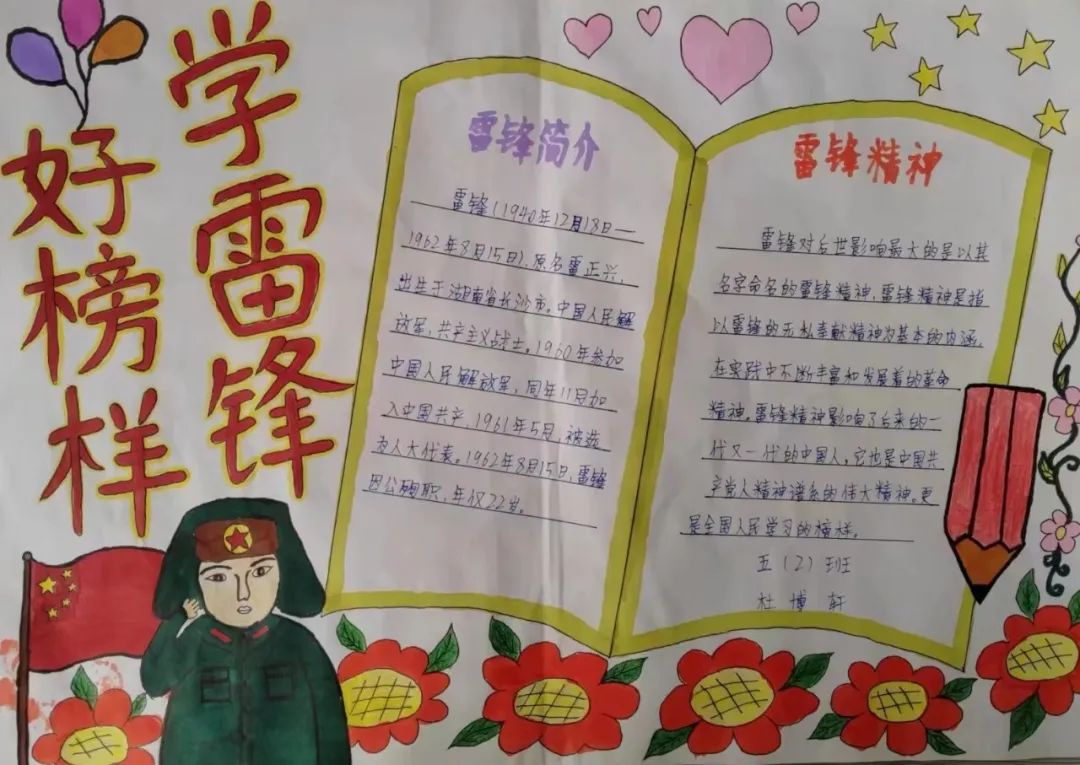 学雷锋
好榜样
雷锋简介
雷锋(1940年12月18日—
1962年8月15日),原名雷正兴,
出生于湖南省长沙市。中国人民解
放军,共产主义战士。1960年参加
中国人民解放军,同年11月加
入中国共产,1961年5月,被选
为人大代表。1962年8月15日,雷锋
因公殉职,年仅22岁。
雷锋精神
雷锋对后世影响最大的是以其
名字命名的雷锋精神,雷锋精神是指
以雷锋的无私奉献精神为基本的内涵,
在实践中不断丰富和发展着的革命
精神。雷锋精神影响了后来的一
代又一代的中国人。它也是中国共
产党人精神谱系的伟大精神。更
是全国人民学习的榜样。
五(2)班
杜博轩